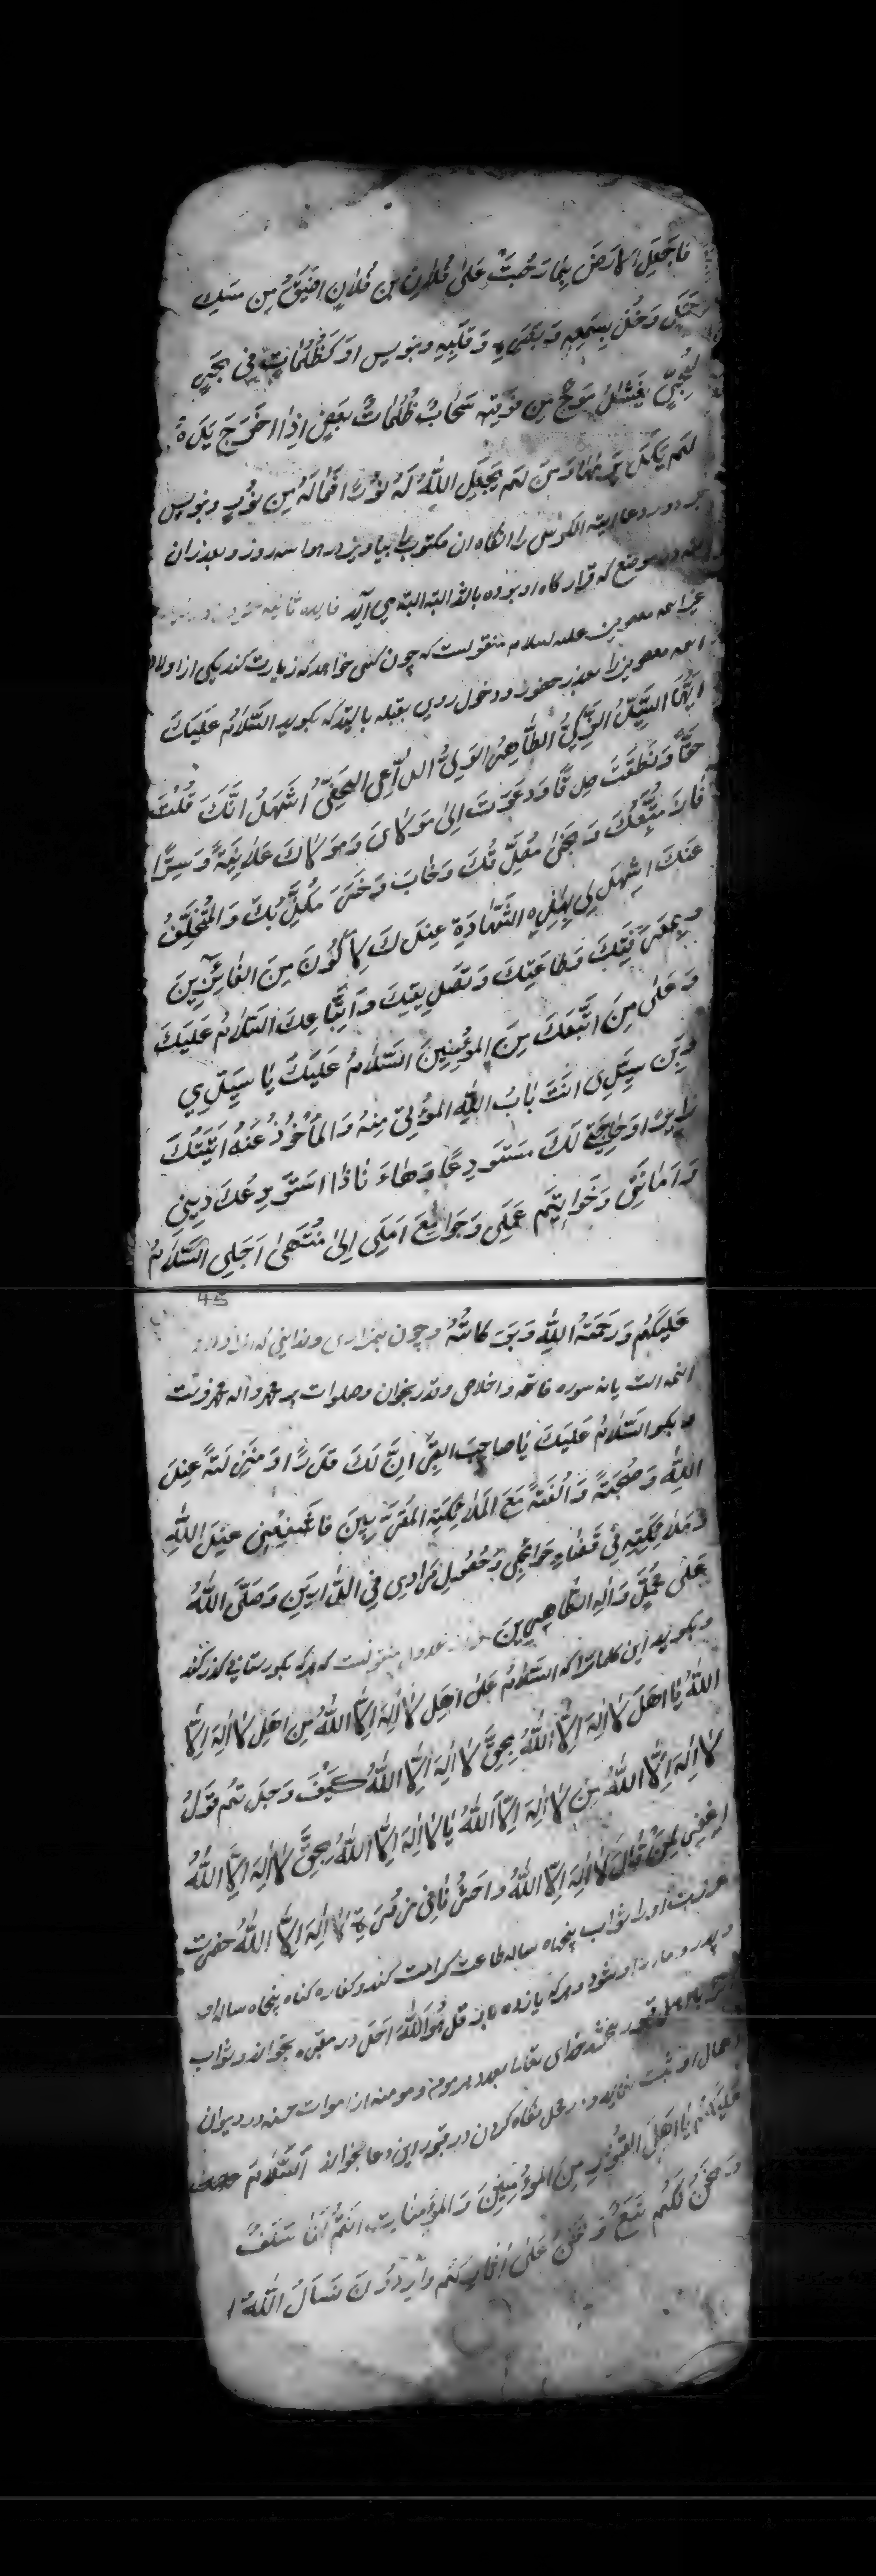 فاجعل الارض بما رحبت على فلان بن فلان اضيق من مسك
جمل وخذ بسمعه وبصره وقلبه وبنويس او كظلمات في بحر
لجي يغشه موج من فوقه سحاب ظلمات بعض اذا اخرج يده
لم يكد يريها ومن لم يجعل الله له نورا فما له من نور وبنويس
بر دور دعا اية الكرسى را انكاه ان مكتوب را بياويزد در هوا سه روز و بعد از ان
در موضع كه قرار كاه او بوده بالله البته البته مى آيد
معصومين عليه السلام منقولست كه چون كسى خواهد كه زيارت كند يكى از اولاد
ائمه معصومين را بعد از حضور ودخول روى بقبله بايستد كه بكويد السلام عليك
ايها السيد الزكي الطاهر الولي الداعي الحفي اشهد انك قلت
حقا ونطقت صدقا ودعوت الى مولاى ومولاك علانية وسرا
فاز متبعك ونجى مصدقك وخاب وخسر مكذبك والمتخلف
عنك اشهد لي بهذه الشهادة عندك لاكون من الفائزين
وبمعرفتك وطاعتك وتصديقك واتباعك السلام عليك
وعلى من اتبعك من المؤمنين السلام عليك يا سيدي
وبن سيدى انت باب الله المؤتى منه والماخوذ عنه اتيتك
زايرا وحاجتي لك مستودعا وها انا ذا استودعك ديني
وامانتى وخواتيم عملى وجوامع املى الى منتهى اجلى السلام
45
عليكم ورحمة الله وبركاته وچون بمزارى وندانى كه از اولاد
ائمه است يا نه سوره فاتحه واخلاص وقدر بخوان وصلوات بر محمد واله محمد فرست
وبكو السلام عليك يا صاحب القبر ان لك قدرا ومنزلة عند
الله وصحبة والفة مع الملائكة المقربين فاشفعنى عند الله
وملائكته في قضاء حوائجي وحصول مرادى في الدارين وصلى الله
على محمد واله الطاهرين منقولست كه هركه بكورستانى كذر كند
وبكويد اين كلمات را كه السلام على اهل لا اله الا الله من اهل لا اله الا
الله يا اهل لا اله الا الله بحق لا اله الا الله كيف وجدتم قول
لا اله الا الله من لا اله الا الله يا لا اله الا الله بحق لا اله الا الله
اغفر لمن قال لا اله الا الله واحشرنا في زمرة لا اله الا الله حضرت
عزت او را ثواب پنجاه ساله طاعت كرامت كند وكفاره كناه پنجاه ساله او
وپدر ومادر او شود وهركه يازده بار قل هو الله احد در مقبره بخواند وثواب
قبور بخشد خداى تعالى بعدد هر مومن ومومنه از اموات حسنه در ديوان
اعمال او ثبت نمايد ودر محل نكاه كردن در قبور اين دعا بخواند السلام
عليكم يا اهل القبور من المؤمنين والمؤمنات انتم لنا سلف
ونحن لكم تبع ونحن على اثاركم واردون نسال الله